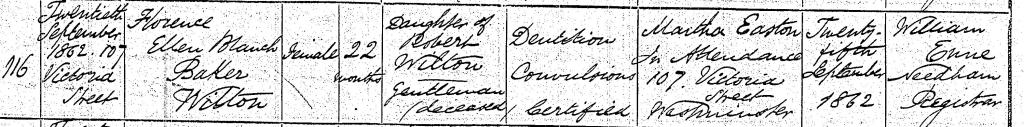 116
Twentieth
September
1862. 107
Victoria
Street
Florence
Ellen Blanch
Baker
Wilton
Female
22
months
Daughter of
Robert
Wilton
Gentleman
(deceased)
Dentition
Convulsions
Certified
Martha Easton
In Attendance
107. Victoria
Street
Westminster
Twenty-
fifth
September
1862
William
Needham
Registrar